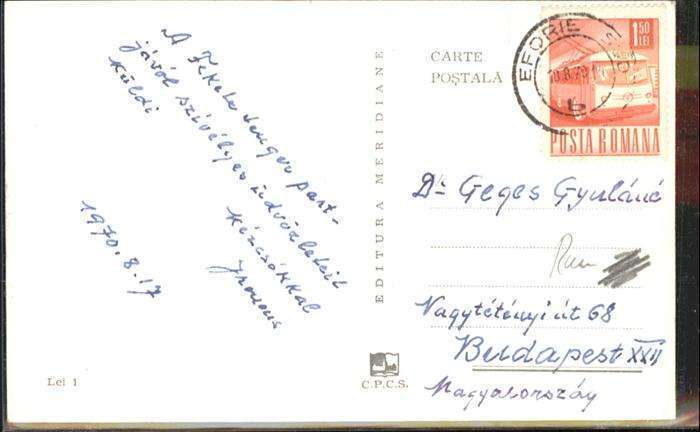 A Fekete tenger part-
járól szívélyes üdvözleteit
küldi
kézcsókkal
1970.8.17
Lei 1
EDITURA MERIDIANE
C.P.C.S.
CARTE
POȘTALĂ
EFORIE
1,50
LEI
POSTA ROMANA
Dr Geges Gyuláné
Nagytétényi út 68
Budapest XXII
Magyarország